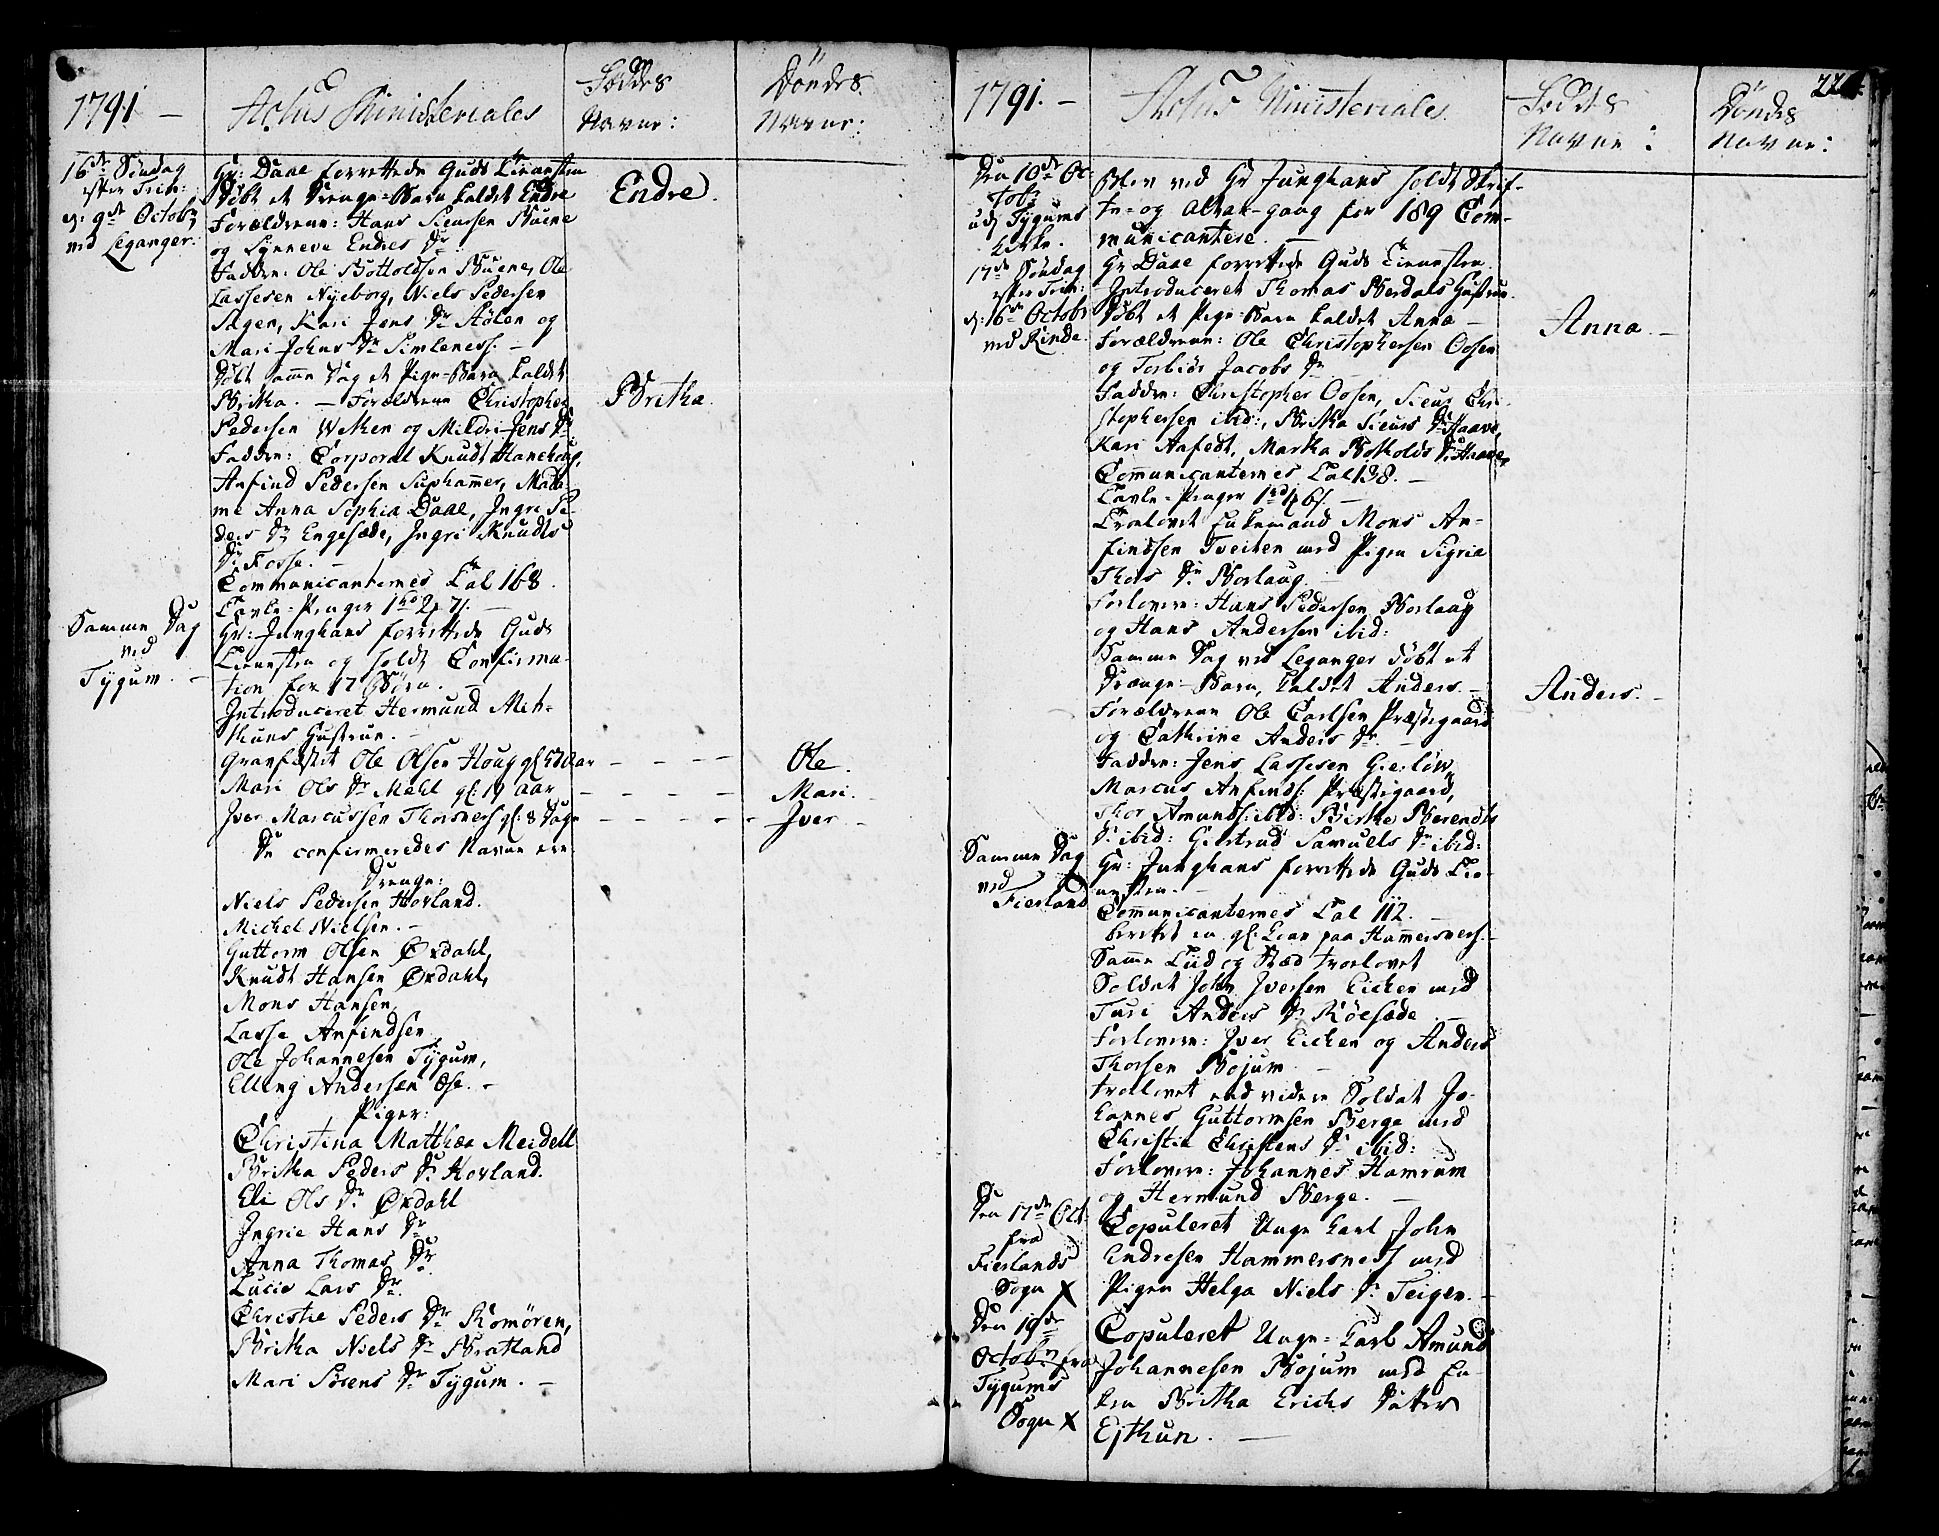 1791 —
Actus Ministeriales
Föddes
Navne:
Döndes
Navne:
16de Söndag
efter Trin:
d: 9de Octobr
ved Leganger.
Hr: Daae forrettede Guds Tienesten
Döbt et Drenge-Barn kaldet Endre
Forældrene: Hans Siursen Büene
og Synneve Endres Dr
Faddere: Ole Bottolfsen Büene, Ole
Lassesen Nyeborg, Niels Pedersen
Sægen, Kari Jens Dr Hölen og
Mari Johns Dr Simleness. —
Döbt samme Dag et Pige-Barn kaldet
Britha. — Forældrene Christopher
Pedersen Weken og Mildri Jens Dr
Faddere: Corporal Knudt Hanehoug,
Anfind Pedersen Suphamer, Mada-
me Anna Sophia Daae, Ingri Pe-
ders Dr Engesæde, Ingri Knudts
Dr Fosse. —
Communicanternes Tal 168.
Tavle-Penger 1rd 2# 7s. —
Endre.
Britha.
Samme Dag
ved
Tygum. —
Hr: Junghans forrettede Guds
Tienesten og holdt Confirma-
tion for 17 Börn. —
Introduceret Hermund Meh-
lhuns Hustrue. —
Gravfæstet Ole Olsen Houg gl: 57 Aar — — — —
Ole.
Mari Ols Dr Mehl gl: 19 Aar — — — —
Mari. —
Iver Marcussen Thorsness gl: 8 Dage — — — —
Iver. —
De confirmeredes Navne ere
Drenge:
Niels Pedersen Hovland.
Michel Nielsen. —
Guttorm Olsen Oxdahl,
Knudt Hansen Oxdahl,
Mons Hansen,
Lasse Anfindsen
Ole Johannesen Tygum,
Elling Andersen Ese. —
Piger:
Christina Matthæa Meidell
Britha Peders Dr Hovland.
Eli Ols Dr Oxdahl
Ingrie Hans Dr
Anna Thomas Dr
Lucie Lars Dr
Christie Peders Dr Romören,
Britha Niels Dr Bratland
Mari Sörens Dr Tygum. —
1791. —
Actus Ministeriales.
Föddes
Navne:
Döndes
Navne:
Den 10de Oc-
tobr
udj Tygums
Kirke.
Blev ved Hr Junghans holdt Skrif-
te- og Altar-gang for 189 Com-
municantere. —
17de Söndag
efter Trin:
d: 16de Octobr
ved Rinde.
Hr Daae forrettede Guds Tienesten.
Introduceret Thomas Berdals Hustrue.
Döbt et Pige-Barn kaldet Anna —
Forældrene: Ole Christophersen Oosen
og Torbiör Jacobs Dr
Faddere: Christopher Oosen, Siur Chri-
stophersen ibid:, Britha Siurs Dr Haave,
Kari Aafedt, Martha Botholds Dr Haave,
Communicanternes Tal 138. —
Tavle-Penger 1rd # 6s. —
Anna. —
Troelovet Enkemand Mons An-
findsen Tveiten med Pigen Sigrie
Thors Dr Borlaug. —
Forlovere: Hans Pedersen Borlaug
og Hans Andersen ibid:
Samme Dag ved Leganger döbt et
Drænge-Barn, kaldet Anders. —
Forældrene Ole Carlsen Præstegaard
og Cathrine Anders Dr —
Faddere: Jens Lassesen Gierlöw,
Marcus Anfinds: Præstegaard,
Thor Amunds: ibid: Birthe Berendts
Dr ibid: Giertrud Samuels Dr ibid:
Anders. —
Samme Dag
ved
Fierland
Hr: Junghans forrettede Guds Tie-
nesten. —
Communicanternes Tal 112. —
berettet en gl: Kone paa Hammersness. —
Samme Tiid og Stæd troelovet
Soldat John Iversen Eichen med
Turi Anders Dr Röesæde —
Forlovere: Iver Eichen og Anders
Thorsen Bojum. —
troelovet end videre Soldat Jo-
hannes Guttormsen Berge med
Christie Christens Dr ibid:
Forlovere: Johannes Hamrum
og Hermund Berge. —
Den 17de Oct:
fra
Fierlands
Sogn X
Copuleret Unge Karl John
Endresen Hammersness med
Pigen Helga Niels Dr Teigen. —
Den 19de
Octobr fra
Tygums
Sogn X
Copuleret Unge-Karl Amund
Johannesen Bojum med En-
ken Britha Erichs Datter
Ejthun. —